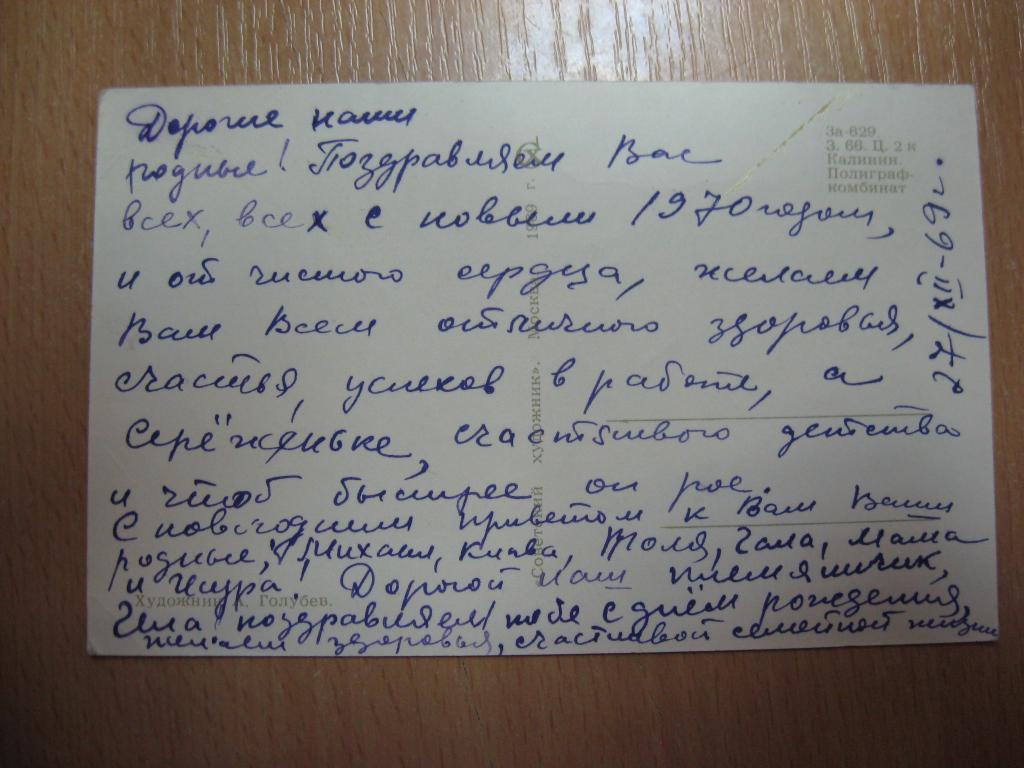 Дорогие наши
родные! Поздравляем Вас
всех, всех с новым 1970 годом,
и от чистого сердца, желаем
Вам всем отличного здоровья,
счастья, успехов в работе, а
Серёженьке, счастливого детства
и чтоб быстрее он рос.
С новогодним приветом к Вам Ваши
родные, Михаил, Клава, Толя, Гала, Маша
и Шура! Дорогой наш племянничек,
поздравляем тебе с днём рождения,
желаем здоровья, счастливой семейной жизни
27/XII-69г.
За-629
З. 66. Ц. 2 к
Калинин.
Полиграф-
комбинат
«Советский художник». Москва 1969 г.
Художник А. Голубев.